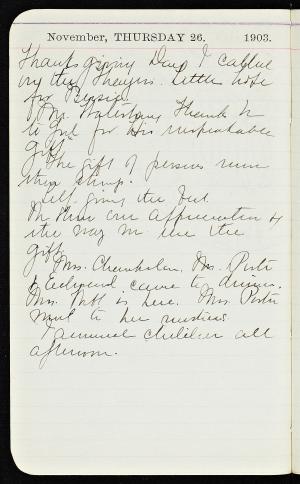 November, THURSDAY 26. 1903.
Thanksgiving Day I called
on the Thayers. Little hope
for Bessie.
Mr. Thanks be
to God for His unspeakable
Gift"
The gift of persons more
than things.
Self giving the best
We show our appreciation by
the way we use the
gift.
Mrs. Chamberlain, Mrs. Porter
& Edward came to dinner.
Mrs. is here. Mrs. Porter
went to her
I children all
afternoon.